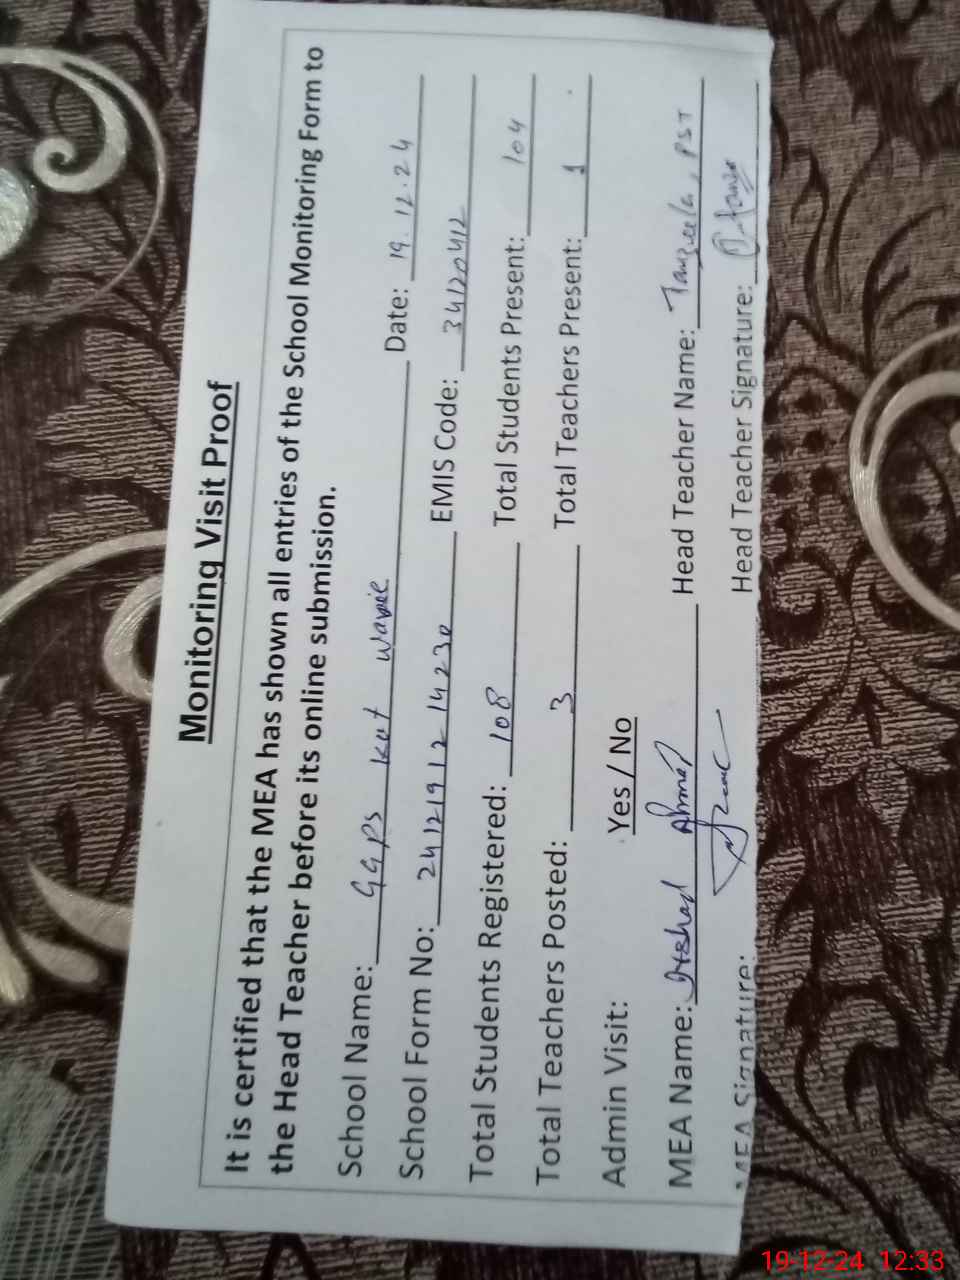 Monitoring Visit Proof
It is certified that the MEA has shown all entries of the School Monitoring Form to
the Head Teacher before its online submission.
School Name: GGPS Kot Warie Date: 19.12.24
School Form No: 24121912 14230 EMIS Code: 34120412
Total Students Registered: 108 Total Students Present: 104
Total Teachers Posted: 3 Total Teachers Present: 1
Admin Visit: Yes / No
MEA Name: Irshad Ahmad Head Teacher Name: Tanzeela, PST
MEA Signature: Head Teacher Signature:
19-12-24 12:33